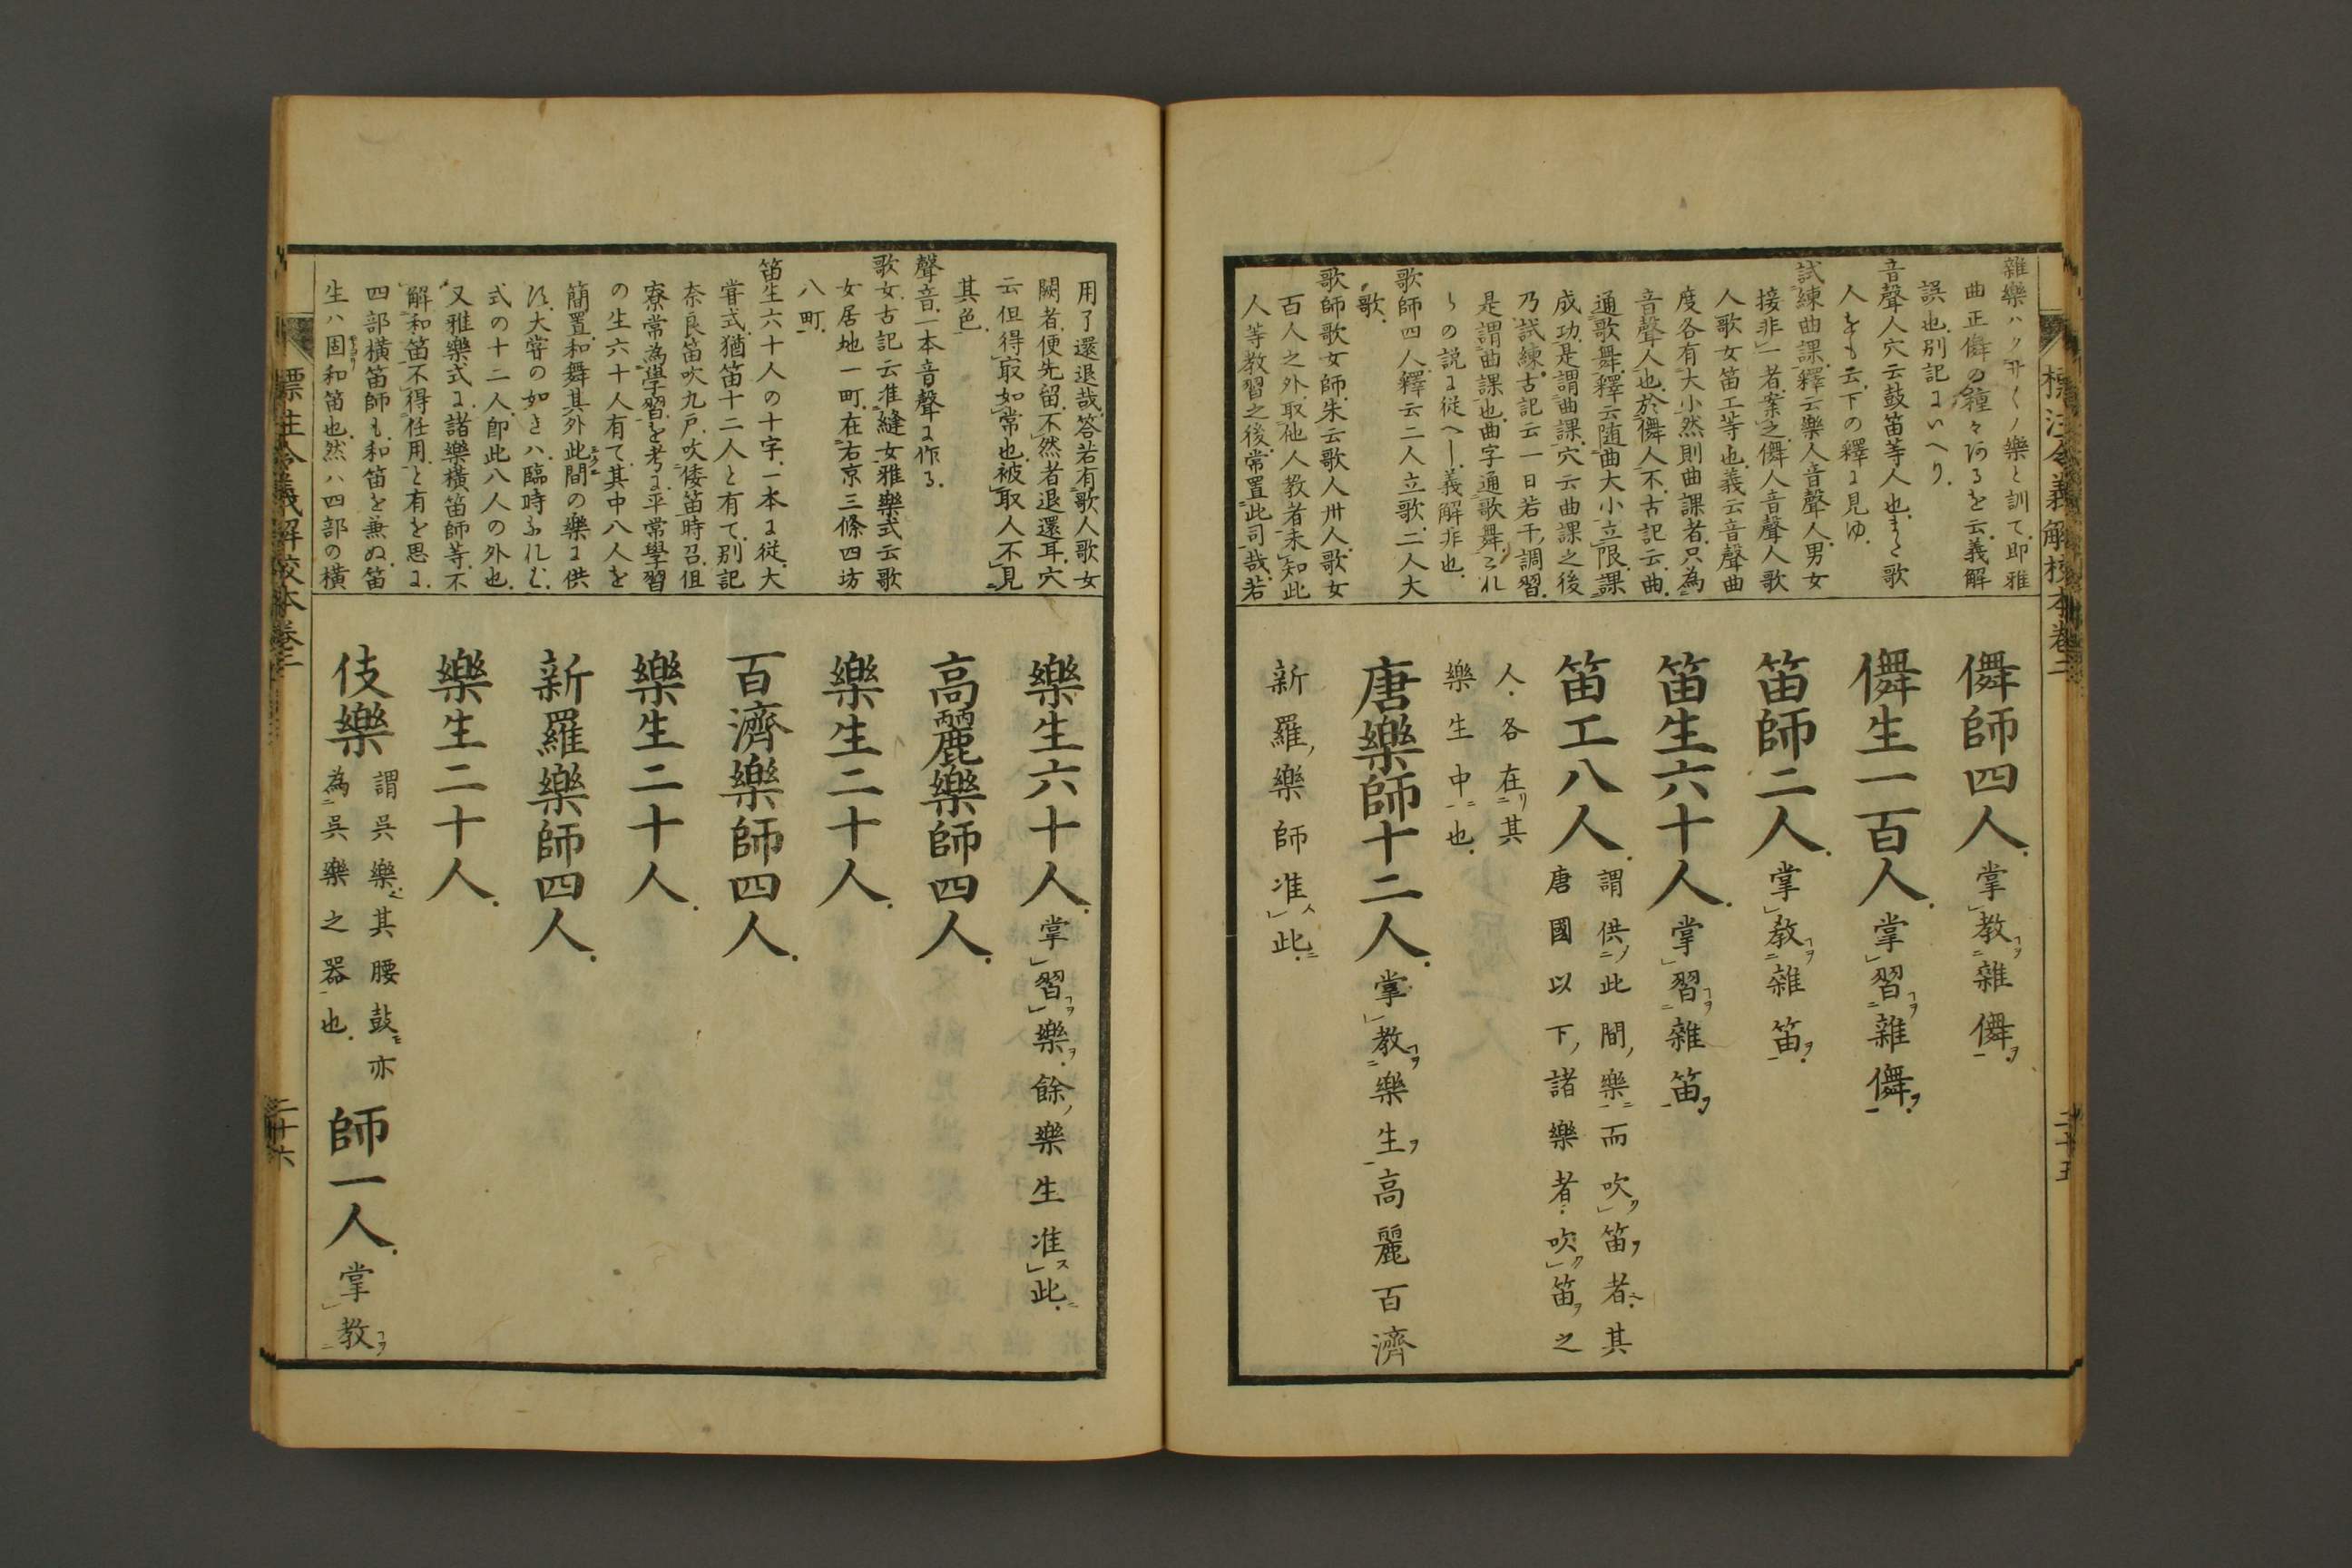 標注令義解校本卷二
二十五
雜樂ハクサ〱ノ樂と訓て即雅
曲正儛の種々あるを云義解
誤也別記にいへり
音聲人穴云鼓笛等人也また歌
人をも云下の釋に見ゆ
試練曲課釋云樂人音聲人男女
接非一者案之儛人音聲人歌
人歌女笛工等也義云音聲曲
度各有大小然則曲課者只為
音聲人也於儛人不古記云曲
通歌舞釋云随曲大小立限課
成功是謂曲課穴云曲課之後
乃試練古記云一日若干調習
是謂曲課也曲字通歌舞これ
らの説に従へし義解非也
歌師四人釋云二人立歌二人大
歌
歌師歌女師朱云歌人卅人歌女
百人之外取他人教者未知此
人等教習之後常置此司哉若
儛師四人掌教雜儛
儛生一百人掌習雜儛
笛師二人掌教雜笛
笛生六十人掌習雜笛
笛工八人謂供此間樂而吹笛者其
唐國以下諸樂者吹笛之
人各在其
樂生中也
唐樂師十二人掌教樂生高麗百濟
新羅樂師准此
用了還退哉答若有歌人歌女
闕者便先留不然者退還耳穴
云但得取如常也被取人不見
其色
聲音一本音聲に作る
歌女古記云准縫女雅樂式云歌
女居地一町在右京三條四坊
八町
笛生六十人の十字一本に従大
甞式猶笛十二人と有て別記
奈良笛吹九戸吹倭笛時召但
寮常為學習を考に平常學習
の生六十人有て其中八人を
簡置和舞其外此間の樂に供
す大甞の如きハ臨時ふれど
式の十二人即此八人の外也
又雅樂式に諸樂橫笛師等不
解和笛不得任用と有を思に
四部橫笛師も和笛を兼ぬ笛
生ハ固和笛也然ハ四部の橫
樂生六十人掌習樂餘樂生准此
高麗樂師四人
樂生二十人
百濟樂師四人
樂生二十人
新羅樂師四人
樂生二十人
伎樂謂呉樂其腰鼓亦
為呉樂之器也
師一人掌教
標注令義解校本卷二
二十六